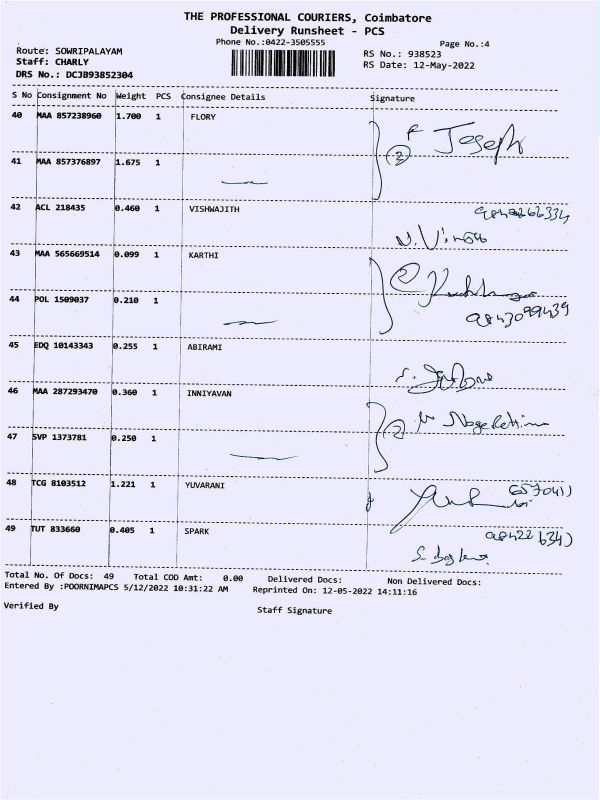 THE PROFESSIONAL COURIERS, Coimbatore
Delivery Runsheet - PCS
Phone No.:0422-3505555
Page No.:4
Route: SOWRIPALAYAM
Staff: CHARLY
DRS No.: DCJB93852304
RS No.: 938523
RS Date: 12-May-2022
S No Consignment No Weight PCS Consignee Details Signature
40 MAA 857238960 1.700 1 FLORY
F Joseph
2
41 MAA 857376897 1.675 1
42 ACL 218435 0.460 1 VISHWAJITH
43 MAA 565669514 0.099 1 KARTHI
44 POL 1509037 0.210 1
9843099439
45 EDQ 10143343 0.255 1 ABIRAMI
46 MAA 287293470 0.360 1 INNIYAVAN
2
47 SVP 1373781 0.250 1
48 TCG 8103512 1.221 1 YUVARANI
49 TUT 833660 0.405 1 SPARK
Total No. Of Docs: 49 Total COD Amt: 0.00 Delivered Docs: Non Delivered Docs:
Entered By :POORNIMAPCS 5/12/2022 10:31:22 AM Reprinted On: 12-05-2022 14:11:16
Verified By
Staff Signature